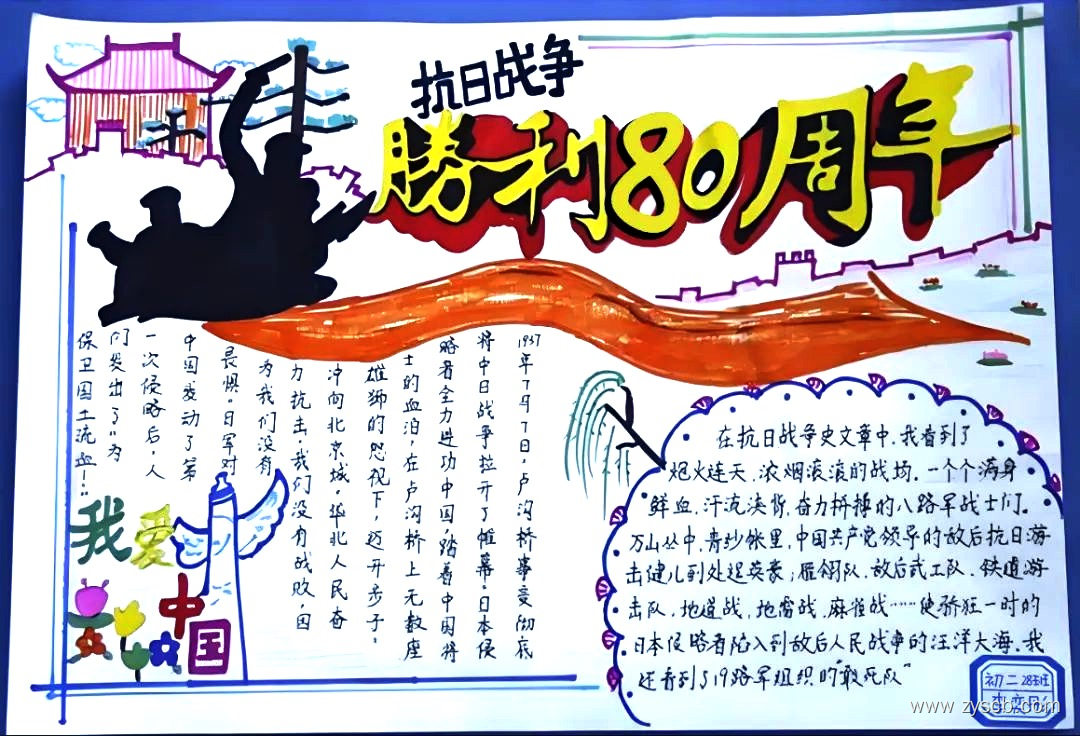 抗日战争
勝利80周年
1937年7月7日，卢沟桥事变彻底
将中日战争拉开了帷幕。日本侵
略者全力进功中国，踏着中国将
士的血泊，在卢沟桥上无数座
雄狮的怒视下，迈开步子，
冲向北京城。华北人民奋
力抗击，我们没有战败，因
为我们没有
畏惧。日军对
中国发动了第
一次侵略后，人
们发出了“为
保卫国土流血！”
我爱
中
国
在抗日战争史文章中，我看到了
炮火连天，浓烟滚滚的战场。一个个满身
鲜血，汗流浃背，奋力拼搏的八路军战士们。
万山丛中，青纱帐里，中国共产党领导的敌后抗日游
击健儿到处逞英豪；雁翎队，敌后武工队，铁道游
击队，地道战，地雷战，麻雀战……使骄狂一时的
日本侵略者陷入到敌后人民战争的汪洋大海，我
还看到了19路军组织的“敢死队”
初二28班
www.zyscb.com